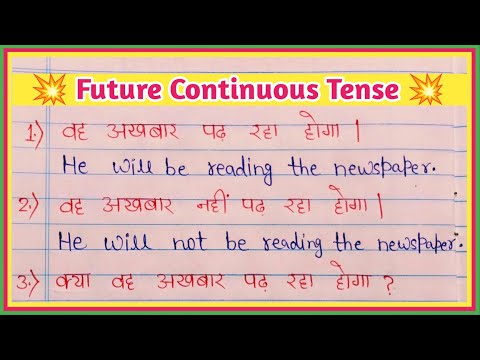 💥 Future Continuous Tense 💥
1.) वह अखबार पढ़ रहा होगा |
He will be reading the newspaper.
2.) वह अखबार नहीं पढ़ रहा होगा |
He will not be reading the newspaper.
3.) क्या वह अखबार पढ़ रहा होगा ?